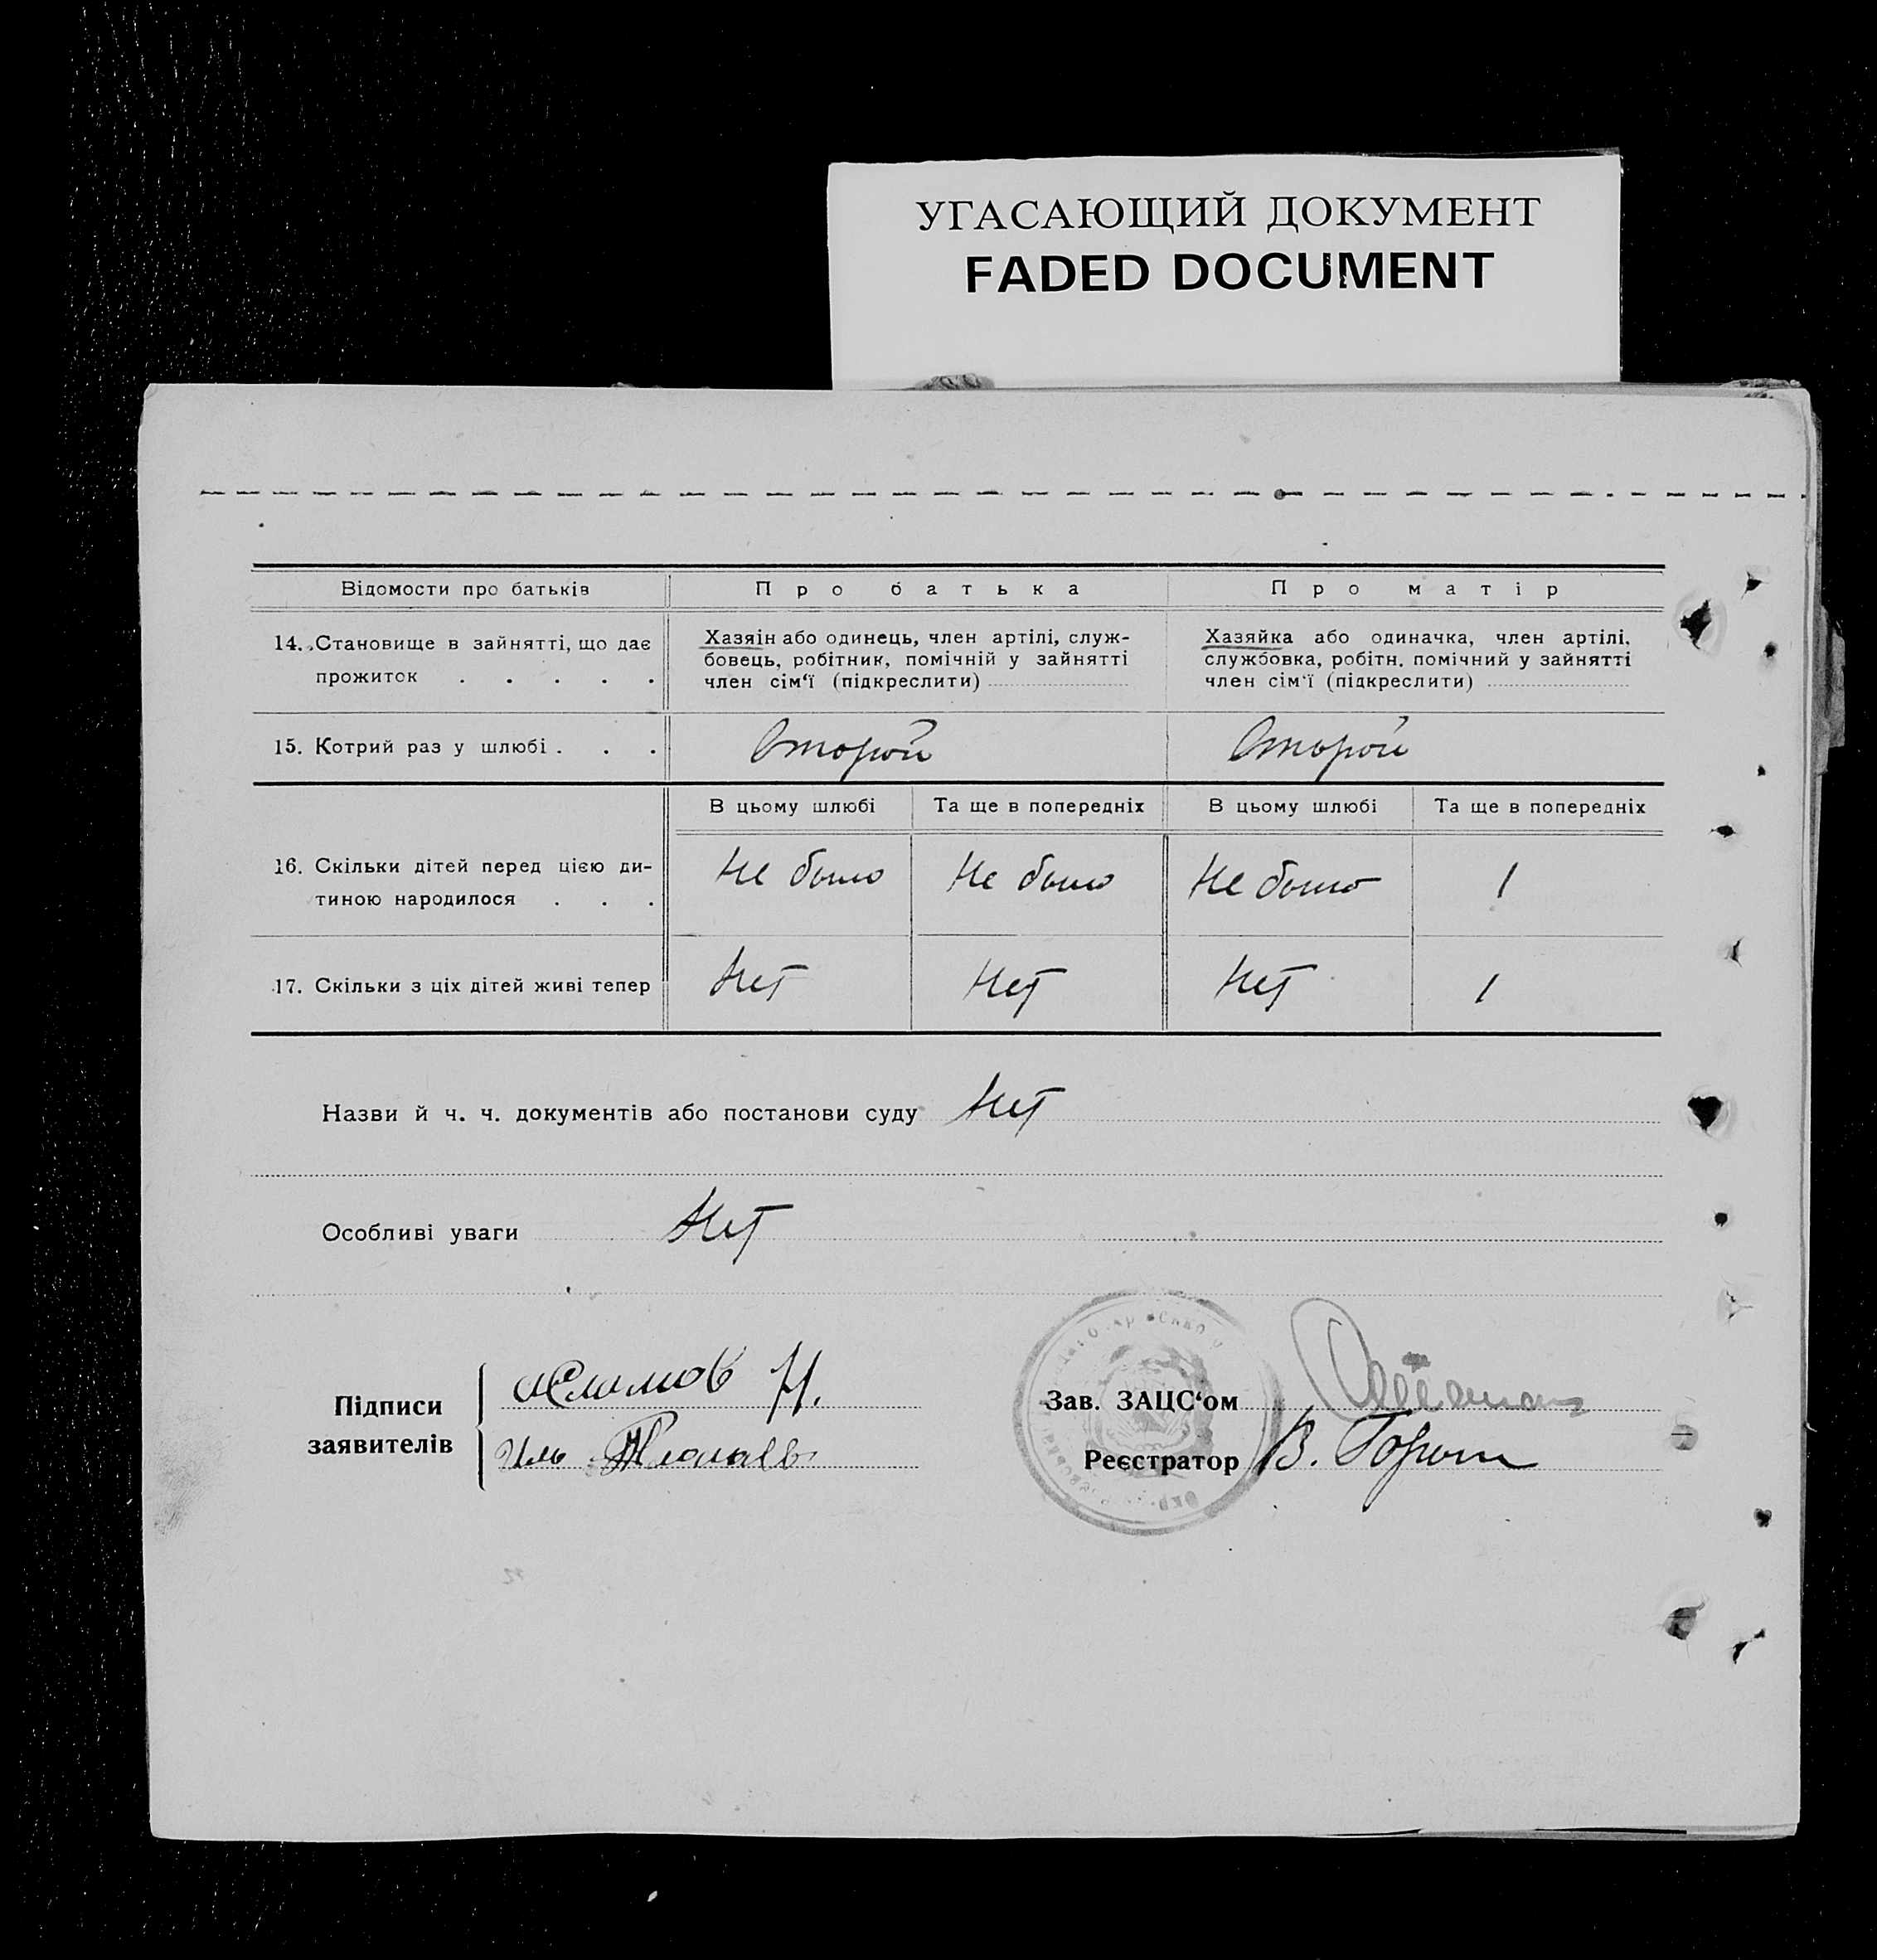 УГАСАЮЩИЙ ДОКУМЕНТ
FADED DOCUMENT
Відомости про батьків
Про батька
Про матір
14. Становище в зайнятті, що дає
прожиток . . . . .
Хазяїн або одинець, член артілі, служ-
бовець, робітник, помічній у зайнятті
член сім‘ї (підкреслити)
Хазяйка або одиначка, член артілі,
службовка, робітн. помічний у зайнятті
член сім‘ї (підкреслити)
15. Котрий раз у шлюбі . . .
Второй
Второй
В цьому шлюбі
Та ще в попередніх
В цьому шлюбі
Та ще в попередніх
16. Скільки дітей перед цією ди-
тиною народилося . . .
Не было
Не было
Не было
1
17. Скільки з ціх дітей живі тепер
Нет
Нет
Нет
1
Назви й ч. ч. документів або постанови суду Нет
Особливі уваги Нет
Підписи
заявителів
Зав. ЗАЦС‘ом
Реєстратор В.